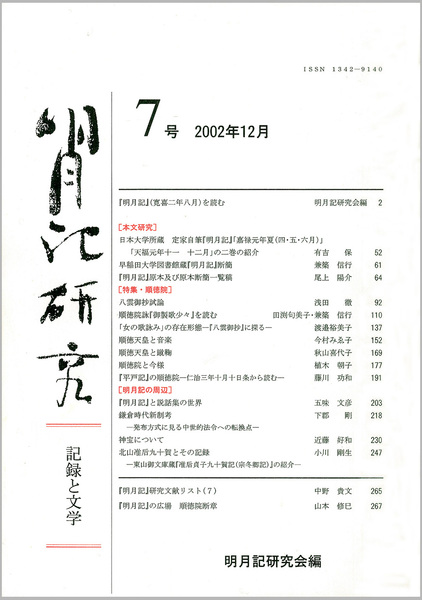 ISSN 1342-9140
明月記研究
記録と文学
7号 2002年12月
『明月記』(寛喜二年八月)を読む 明月記研究会編 2
［本文研究］
日本大学所蔵 定家自筆『明月記』「嘉禄元年夏(四・五・六月)」
「天福元年十一 十二月」の二巻の紹介 有吉 保 52
早稲田大学図書館蔵『明月記』断簡 兼築 信行 61
『明月記』原本及び原本断簡一覧稿 尾上 陽介 64
［特集・順徳院］
八雲御抄試論 浅田 徹 92
順徳院詠『御製歌少々』を読む 田渕句美子・兼築 信行 110
「女の歌詠み」の存在形態―『八雲御抄』に探る― 渡邉裕美子 137
順徳天皇と音楽 今村みゑ子 152
順徳天皇と蹴鞠 秋山喜代子 169
順徳院と今様 植木 朝子 177
『平戸記』の順徳院―仁治三年十月十日条から読む― 藤川 功和 191
［明月記の周辺］
『明月記』と説話集の世界 五味 文彦 203
鎌倉時代新制考 下郡 剛 218
―発布方式に見る中世的法令への転換点―
神宝について 近藤 好和 230
北山准后九十賀とその記録 小川 剛生 247
―東山御文庫蔵『准后貞子九十賀記(宗冬卿記)』の紹介―
『明月記』研究文献リスト(7) 中野 貴文 265
『明月記』の広場 順徳院断章 山本 修巳 267
明月記研究会編